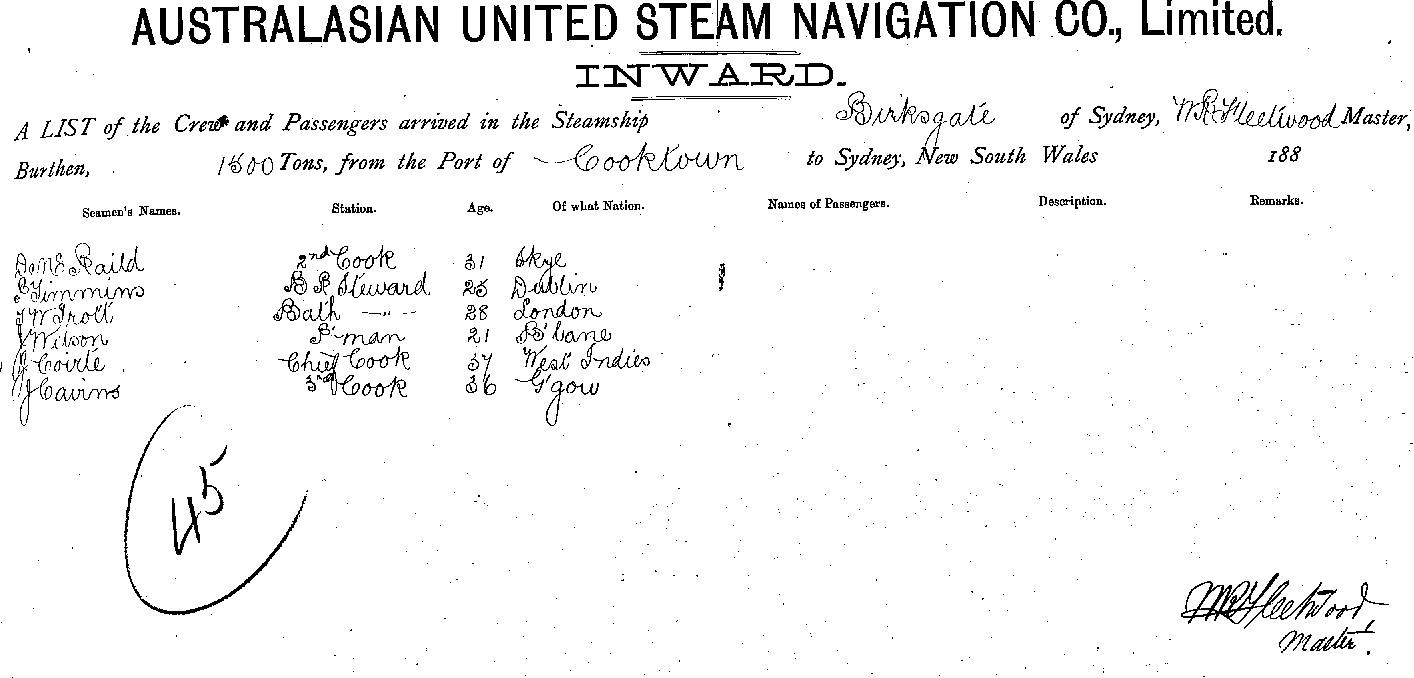 AUSTRALASIAN UNITED STEAM NAVIGATION CO., Limited.
INWARD.
A LIST of the Crew and Passengers arrived in the Steamship Birksgate of Sydney, W R Fleetwood Master,
Burthen, 1500 Tons, from the Port of Cooktown to Sydney, New South Wales 188
Seamen's Names. Station. Age. Of what Nation. Names of Passengers. Description. Remarks.
2nd Cook 31 Skye
Timmins B R Steward 25 Dublin
J W Trott Bath —"— 28 London
J Wilson P'man 21 B'bane
J Coirte Chief Cook 37 West Indies
J Cairns 3rd Cook 36 G'gow
45
W R Fleetwood
Master.